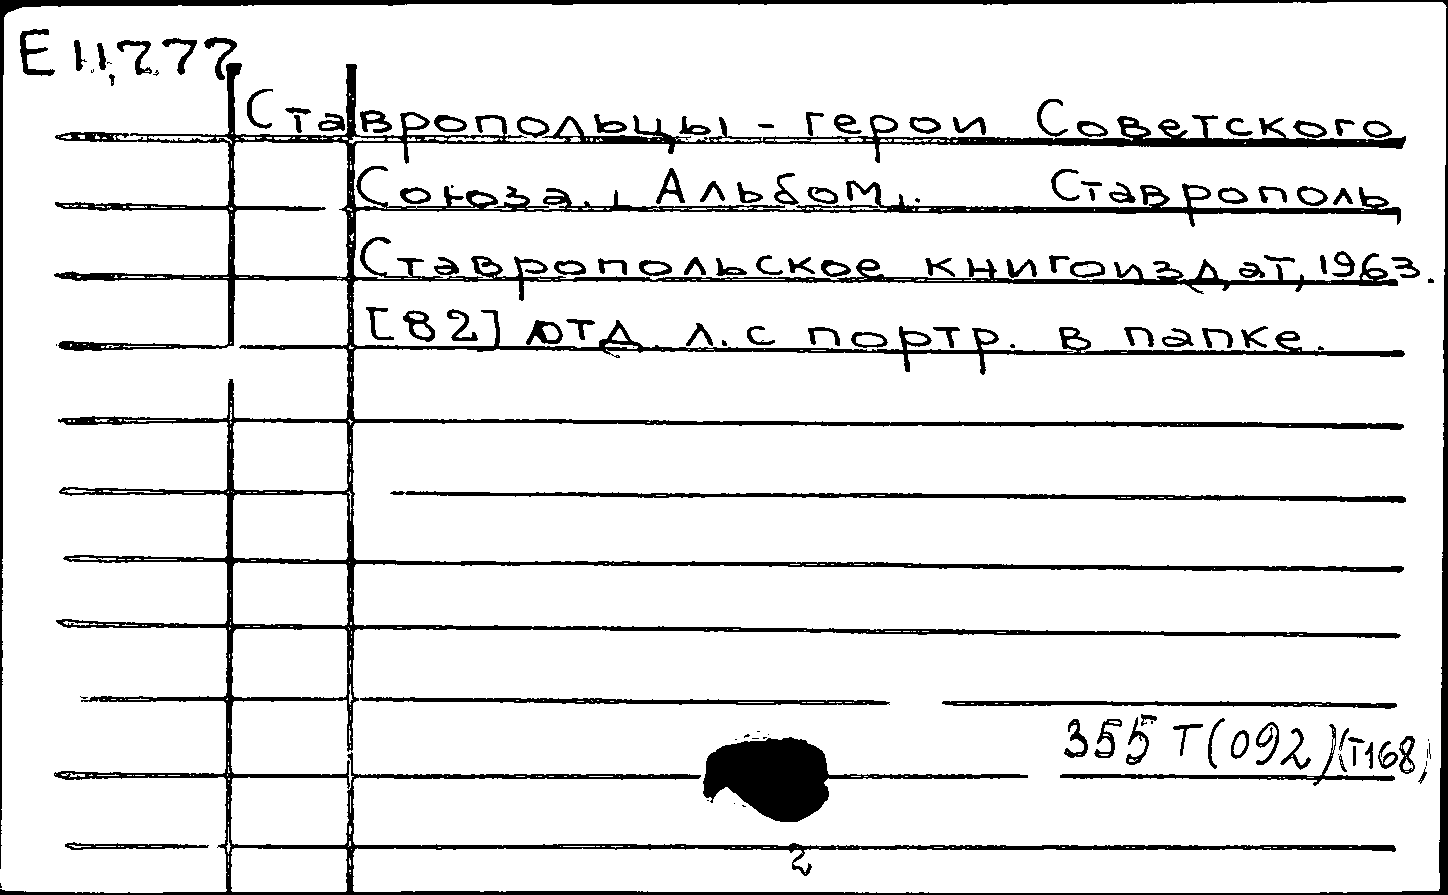 Е 11,777
Ставропольцы - герои Советского
Союза. [Альбом]. Ставрополь,
Ставропольское книгоиздат, 1963.
[82] отд. л. с портр. в папке.
355 Т(092)(Т168)
2